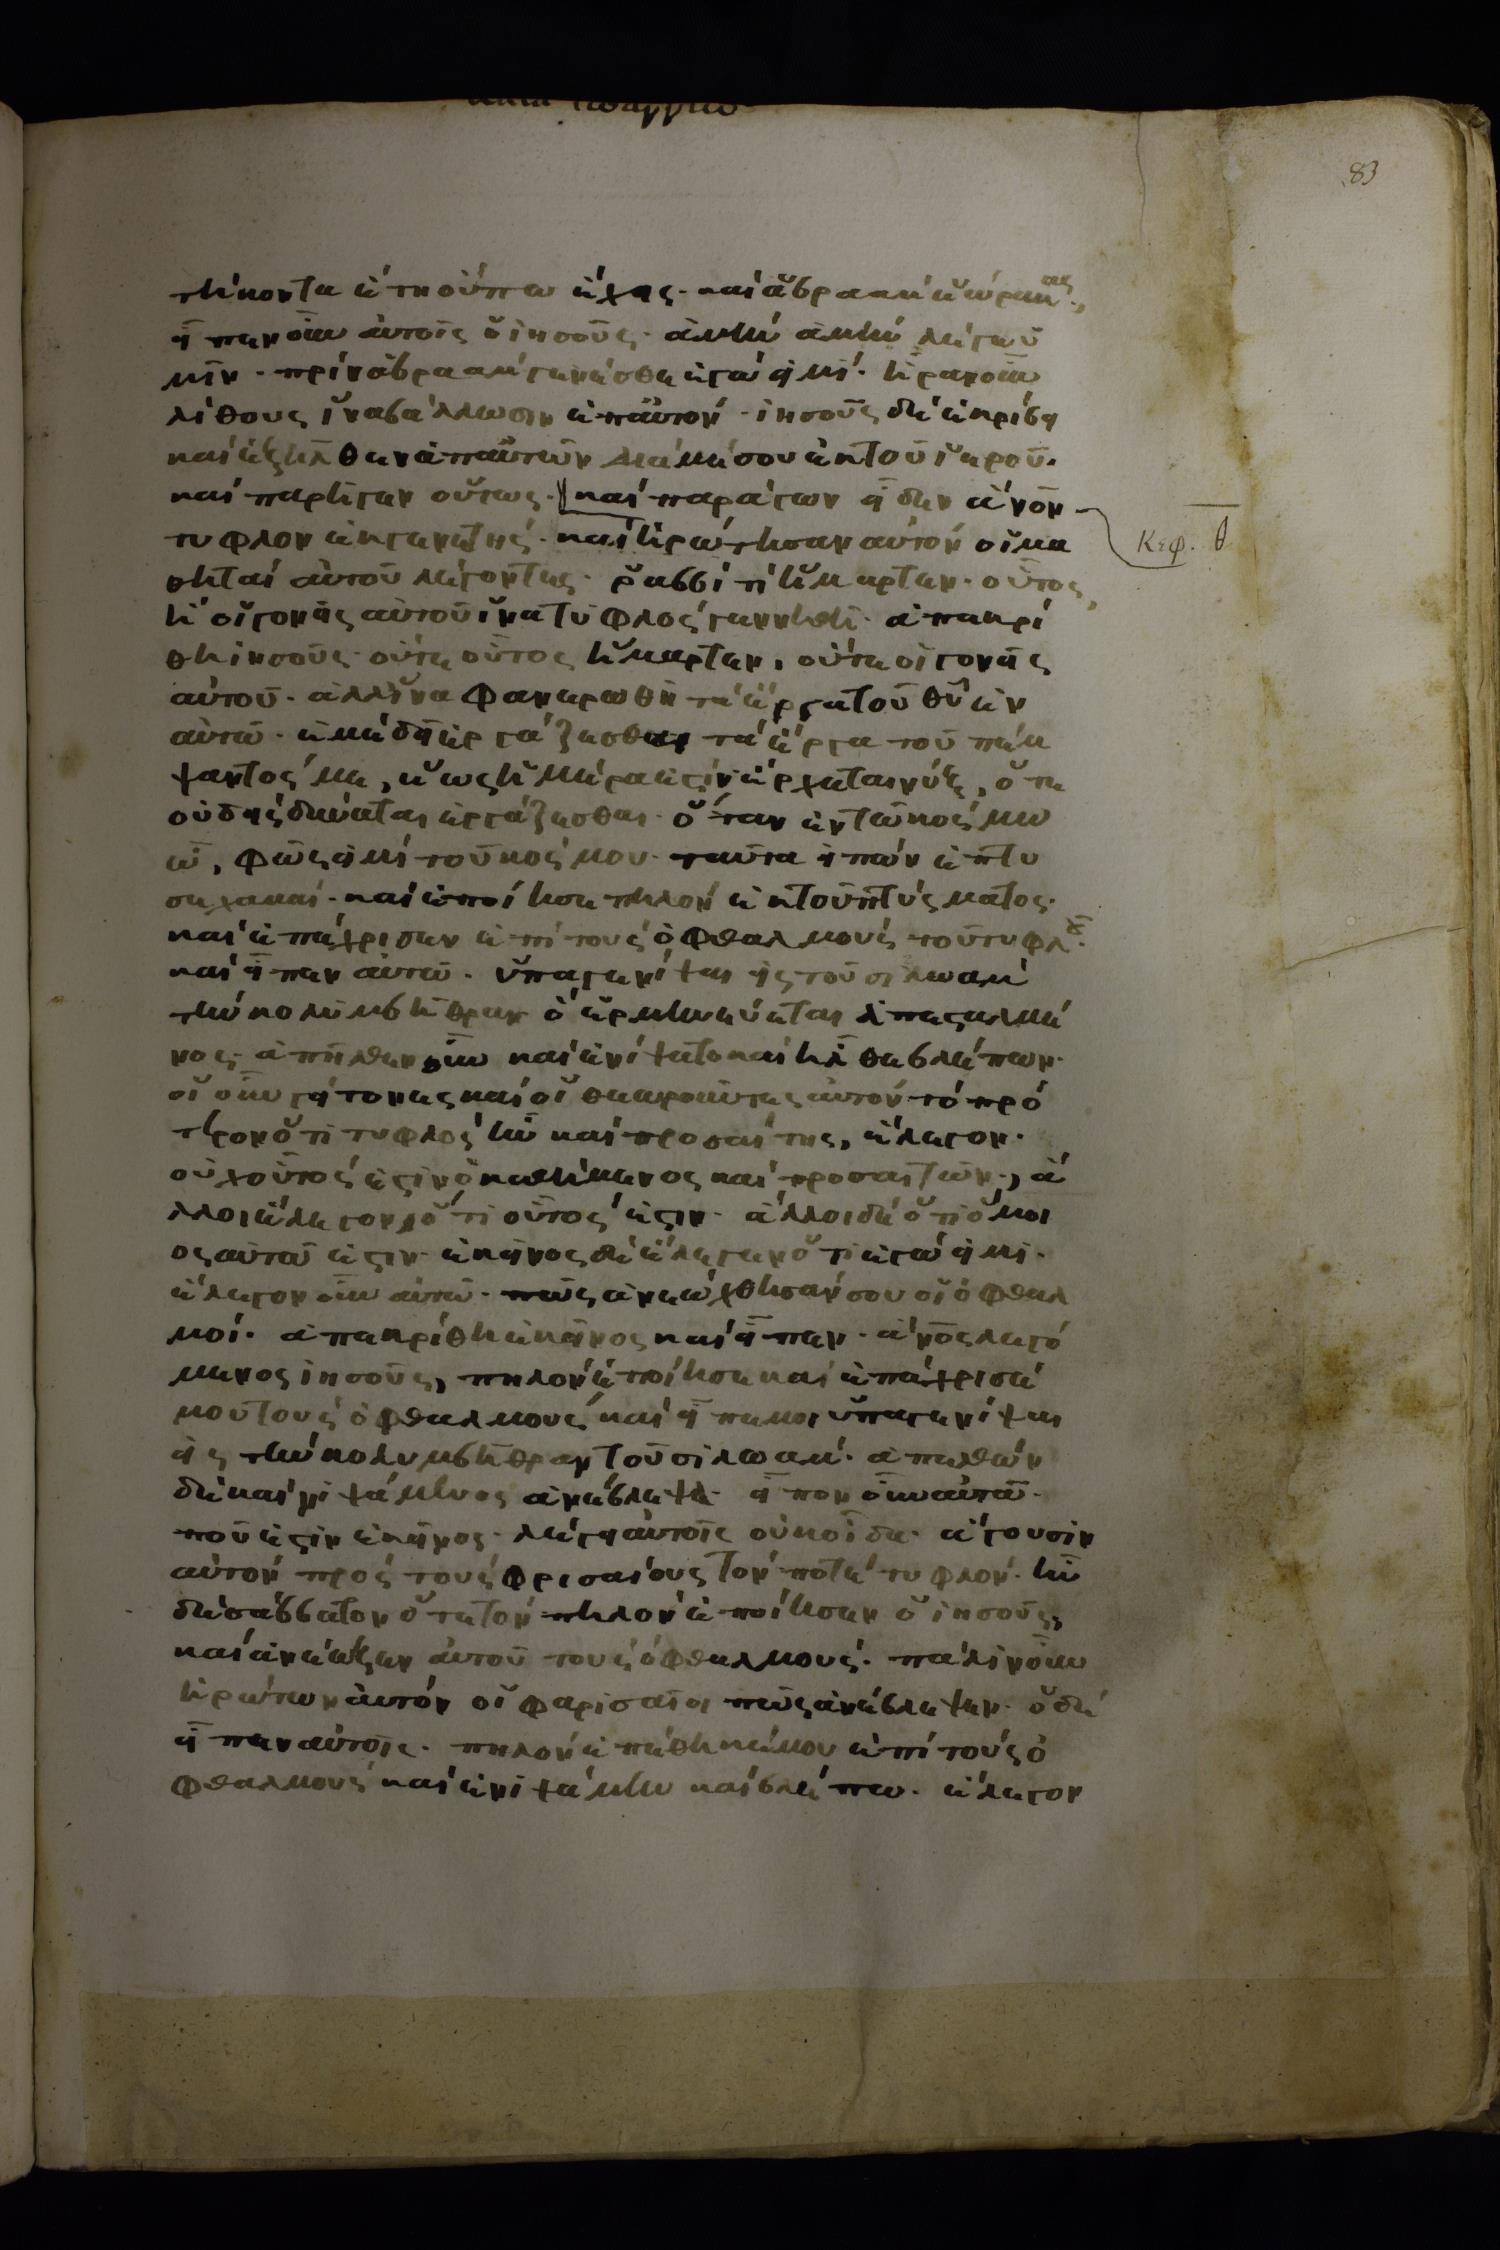 κατα ἰωάννην
83
τήκοντα ἔτη οὔπω ἔχεις· καὶ ἀβραὰμ ἑώρακας·,
εἶπεν οὖν αὐτοῖς ὁ ἰησοῦς· ἀμὴν ἀμὴν λέγω ὑ
μῖν· πρὶν ἀβραὰμ γενέσθαι ἐγώ εἰμί· ἦραν οὖν
λίθους ἵνα βάλλωσιν ἐπ αὐτόν· ἰησοῦς δὲ ἐκρίβη
καὶ ἐξῆλθεν ἀπ αὐτῶν διὰ μέσου ἐκ τοῦ ἱεροῦ·
καὶ παρῆγεν οὕτως· καὶ παράγων εἶδεν ἄνον
τυφλὸν ἐκ γενετῆς· καὶ ἠρώτησαν αὐτόν οἱ μα
Κεφ. θ
θηταὶ αὐτοῦ λέγοντες· ῥαββί τί ἥμαρτεν· οὗτος,
ἢ οἱ γονεῖς αὐτοῦ ἵνα τυφλὸς γεννηθῆ· ἀπεκρί
θη ἰησοῦς· οὔτε οὗτος ἥμαρτεν, οὔτε οἱ γονεῖς
αὐτοῦ· ἀλλ ἵνα φανερωθῆ τὰ ἔργα τοῦ θυ ἐν
αὐτῶ· ἐμὲ δεῖ ἐργάζεσθαι τὰ ἔργα τοῦ πέμ
ψαντός με, ἕως ἡμέρα ἐστίν ἔρχεται νύξ, ὅτε
οὐδεὶς δύναται ἐργάζεσθαι· ὅταν ἐν τῶ κόσμω
ὦ, φῶς εἰμί τοῦ κόσμου· ταῦτα εἰπὼν ἔπτυ
σε χαμαί· καὶ ἐποίησε πηλόν ἐκ τοῦ πτύσματος·
καὶ ἐπέχρισεν ἐπὶ τοὺς ὀφθαλμοὺς τοῦ τυφλ·
καὶ εἶπεν αὐτῶ· ὕπαγε νίψαι εἰς τοῦ σιλωὰμ
τὴν κολυμβήθραν ὃ ἑρμηνεύεται ἀπεσταλμέ
νος· ἀπῆλθεν οὖν καὶ ἐνίψατο καὶ ἦλθε βλέπων·
οἱ οὖν γείτονες καὶ οἱ θεωροῦντες αὐτόν τὸ πρό
τερον ὅτι τυφλὸς ἦν καὶ προσαίτης, ἔλεγον·
οὐχ οὗτός ἐστιν ὁ καθήμενος καὶ προσαιτῶν·, ἄ
λλοι ἔλεγον, ὅτι οὗτός ἐστιν· ἄλλοι δὲ ὅτι ὅμοι
ος αὐτῶ ἐστιν· ἐκεῖνος δὲ ἔλεγεν ὅτι ἐγώ εἰμι·
ἔλεγον οὖν αὐτῶ· πῶς ἀνεώχθησάν σου οἱ ὀφθαλ
μοί· ἀπεκρίθη ἐκεῖνος καὶ εἶπεν· ἄνος λεγό
μενος ἰησοῦς, πηλὸν ἐποίησε καὶ ἐπέχρισέ
μου τοὺς ὀφθαλμούς καὶ εἶπε μοι ὕπαγε νίψαι
εἰς τὴν κολυμβήθραν τοῦ σιλωάμ· ἀπελθὼν
δὲ καὶ νιψάμενος ἀνέβλεψα· εἶπον οὖν αὐτῶ·
ποῦ ἐστιν ἐκεῖνος· λέγει αὐτοῖς οὐκ οἶδα· ἄγουσιν
αὐτὸν πρὸς τοὺς φρισαίους τόν ποτὲ τυφλόν· ἦν
δὲ σάββατον ὅτε τὸν πηλὸν ἐποίησεν ὁ ἰησοῦς,
καὶ ἀνέωξεν αὐτοῦ τοὺς ὀφθαλμούς· πάλιν οὖν
ἠρώτων αὐτόν οἱ φαρισαῖοι πῶς ἀνέβλεψεν· ὁ δὲ
εἶπεν αὐτοῖς· πηλὸν ἐπέθηκέ μου ἐπὶ τοὺς ὀ
φθαλμοὺς καὶ ἐνιψάμην καὶ βλέπω· ἔλεγον